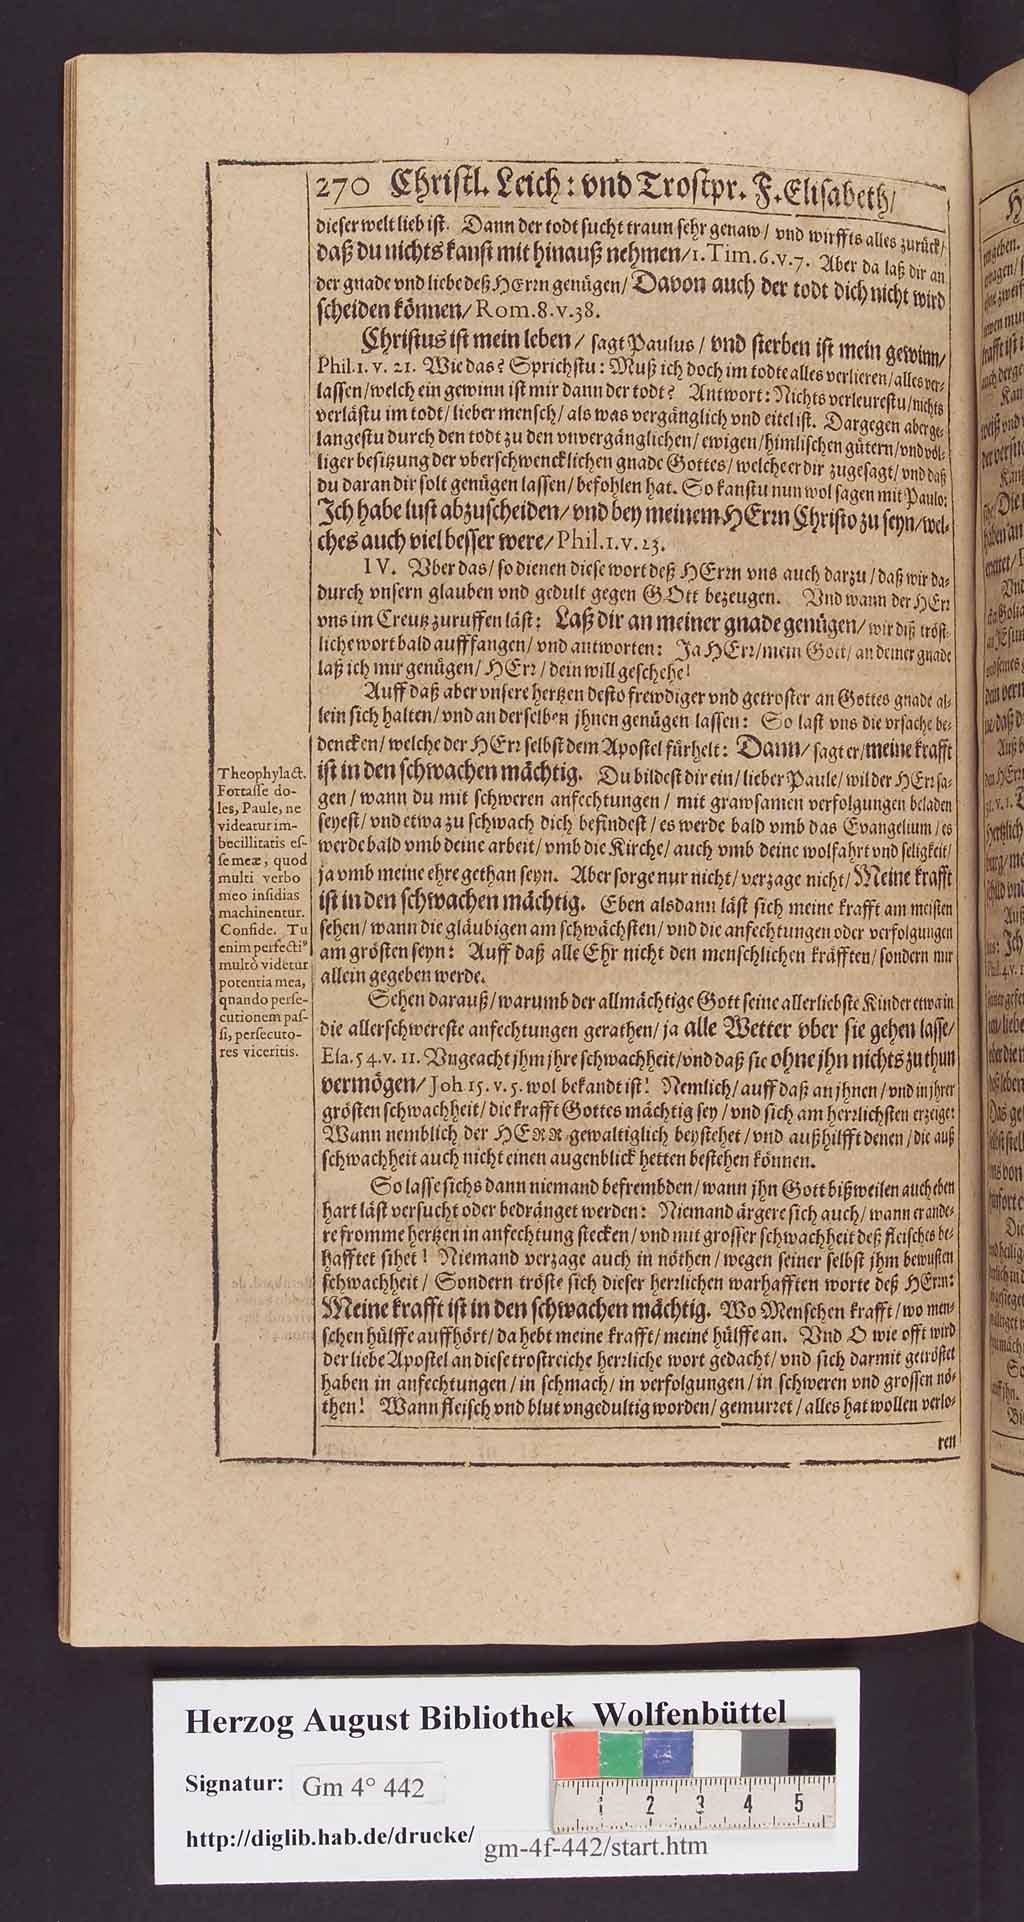 270 Christl. Leich: vnd Trostpr. F. Elisabeth/
dieser welt lieb ist. Dann der todt sucht traun sehr genaw/ vnd wirffts alles zurück/
daß du nichts kanst mit hinauß nehmen/ 1. Tim. 6. v. 7. Aber da laß dir an
der gnade vnd liebe deß HErrn genügen/ Davon auch der todt dich nicht wird
scheiden können/ Rom. 8. v. 38.
Christus ist mein leben/ sagt Paulus/ vnd sterben ist mein gewinn/
Phil. 1. v. 21. Wie das? Sprichstu: Muß ich doch im todte alles verlieren/ alles ver-
lassen/ welch ein gewinn ist mir dann der todt? Antwort: Nichts verleurestu/ nichts
verlästu im todt/ lieber mensch/ als was vergänglich vnd eitel ist. Dargegen aber ge-
langestu durch den todt zu den vnvergänglichen/ ewigen/ himlischen gütern/ vnd völ-
liger besitzung der vberschwencklichen gnade Gottes/ welche er dir zugesagt/ vnd daß
du daran dir solt genügen lassen/ befohlen hat. So kanstu nun wol sagen mit Paulo:
Ich habe lust abzuscheiden/ vnd bey meinem HErrn Christo zu seyn/ wel-
ches auch viel besser were/ Phil. 1. v. 23.
IV. Vber das/ so dienen diese wort deß HErrn vns auch darzu/ daß wir da-
durch vnsern glauben vnd gedult gegen GOtt bezeugen. Vnd wann der HErr
vns im Creutz zuruffen läst: Laß dir an meiner gnade genügen/ wir diß tröst-
liche wort bald aufffangen/ vnd antworten: Ja HErr/ mein Gott/ an deiner gnade
laß ich mir genügen/ HErr/ dein will geschehe!
Auff daß aber vnsere hertzen desto frewdiger vnd getroster an Gottes gnade al-
lein sich halten/ vnd an derselben jhnen genügen lassen: So last vns die vrsache be-
dencken/ welche der HErr selbst dem Apostel fürhelt: Dann/ sagt er/ meine krafft
ist in den schwachen mächtig. Du bildest dir ein/ lieber Paule/ wil der HErr sa-
gen/ wann du mit schweren anfechtungen/ mit grawsamen verfolgungen beladen
seyest/ vnd etwa zu schwach dich befindest/ es werde bald vmb das Evangelium/ es
werde bald vmb deine arbeit/ vmb die Kirche/ auch vmb deine wolfahrt vnd seligkeit/
ja vmb meine ehre gethan seyn. Aber sorge nur nicht/ verzage nicht/ Meine krafft
ist in den schwachen mächtig. Eben alsdann läst sich meine krafft am meisten
sehen/ wann die gläubigen am schwächsten/ vnd die anfechtungen oder verfolgungen
am grösten seyn: Auff daß alle Ehr nicht den menschlichen kräfften/ sondern mir
allein gegeben werde.
Theophylact.
Fortasse do-
les, Paule, ne
videatur im-
becillitatis es-
se meæ, quod
multi verbo
meo insidias
machinentur.
Confide. Tu
enim perfecti9
multò videtur
potentia mea,
quando perse-
cutionem pas-
si, persecuto-
res viceritis.
Sehen darauß/ warumb der allmächtige Gott seine allerliebste Kinder etwa in
die allerschwereste anfechtungen gerathen/ ja alle Wetter vber sie gehen lasse/
Esa. 54. v. 11. Vngeacht jhm jhre schwachheit/ vnd daß sie ohne jhn nichts zu thun
vermögen/ Joh 15. v. 5. wol bekandt ist! Nemlich/ auff daß an jhnen/ vnd in jhrer
grösten schwachheit/ die krafft Gottes mächtig sey/ vnd sich am herrlichsten erzeige:
Wann nemblich der HERR gewaltiglich beystehet/ vnd außhilfft denen/ die auß
schwachheit auch nicht einen augenblick hetten bestehen können.
So lasse sichs dann niemand befrembden/ wann jhn Gott bißweilen auch eben
hart läst versucht oder bedränget werden: Niemand ärgere sich auch/ wann er ande-
re fromme hertzen in anfechtung stecken/ vnd mit grosser schwachheit deß fleisches be-
hafftet sihet! Niemand verzage auch in nöthen/ wegen seiner selbst jhm bewusten
schwachheit/ Sondern tröste sich dieser herrlichen warhafften worte deß HErrn:
Meine krafft ist in den schwachen mächtig. Wo Menschen krafft/ wo men-
schen hülffe auffhört/ da hebt meine krafft/ meine hülffe an. Vnd O wie offt wird
der liebe Apostel an diese trostreiche herrliche wort gedacht/ vnd sich darmit getröstet
haben in anfechtungen/ in schmach/ in verfolgungen/ in schweren vnd grossen nö-
then! Wann fleisch vnd blut vngedultig worden/ gemurret/ alles hat wollen verlo-
ren
Herzog August Bibliothek Wolfenbüttel
Signatur: Gm 4° 442
http://diglib.hab.de/drucke/ gm-4f-442/start.htm
1 2 3 4 5